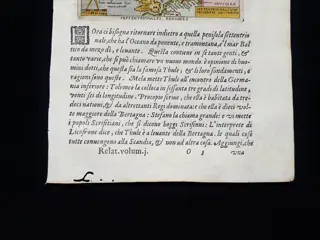 SEPTENTRIONALES REGIONES
ORa ci bisogna ritornare indietro a quella penisula settentrio
nale, che ha l'Oceano da ponente, e tramontana, e'l mar Bal
tico da mezo dì, e leuante. Questa contiene in se tante genti, &
tanto varie, che si può chiamare vn nuouo mondo. è openione di huo
mini dotti, che questa sia la famosa Thule, & li loro fondamenti, e
ragioni sono questi. Mela mette Thule all'incontro della Ger
mania inferiore: Tolomeo la colloca in sessanta tre gradi di latitudine, &
venti sei di longitudine. Procopio scriue, che ella è habitata da tre
deci nationi, & da altretanti Regi dominata: & che ella è dieci vol
te maggiore della Bertagna: Stefano la chiama grande: e vi mette
i popoli Scritifini, che si dicono hoggi Scrifinni: L'interprete di
Licofrone dice, che Thule è a leuante della Bertagna. le quali cose
tutte conuengono alla Scandia, & non ad altra cosa. Aggiungi, che
Relat. volum. j. O 3 vna